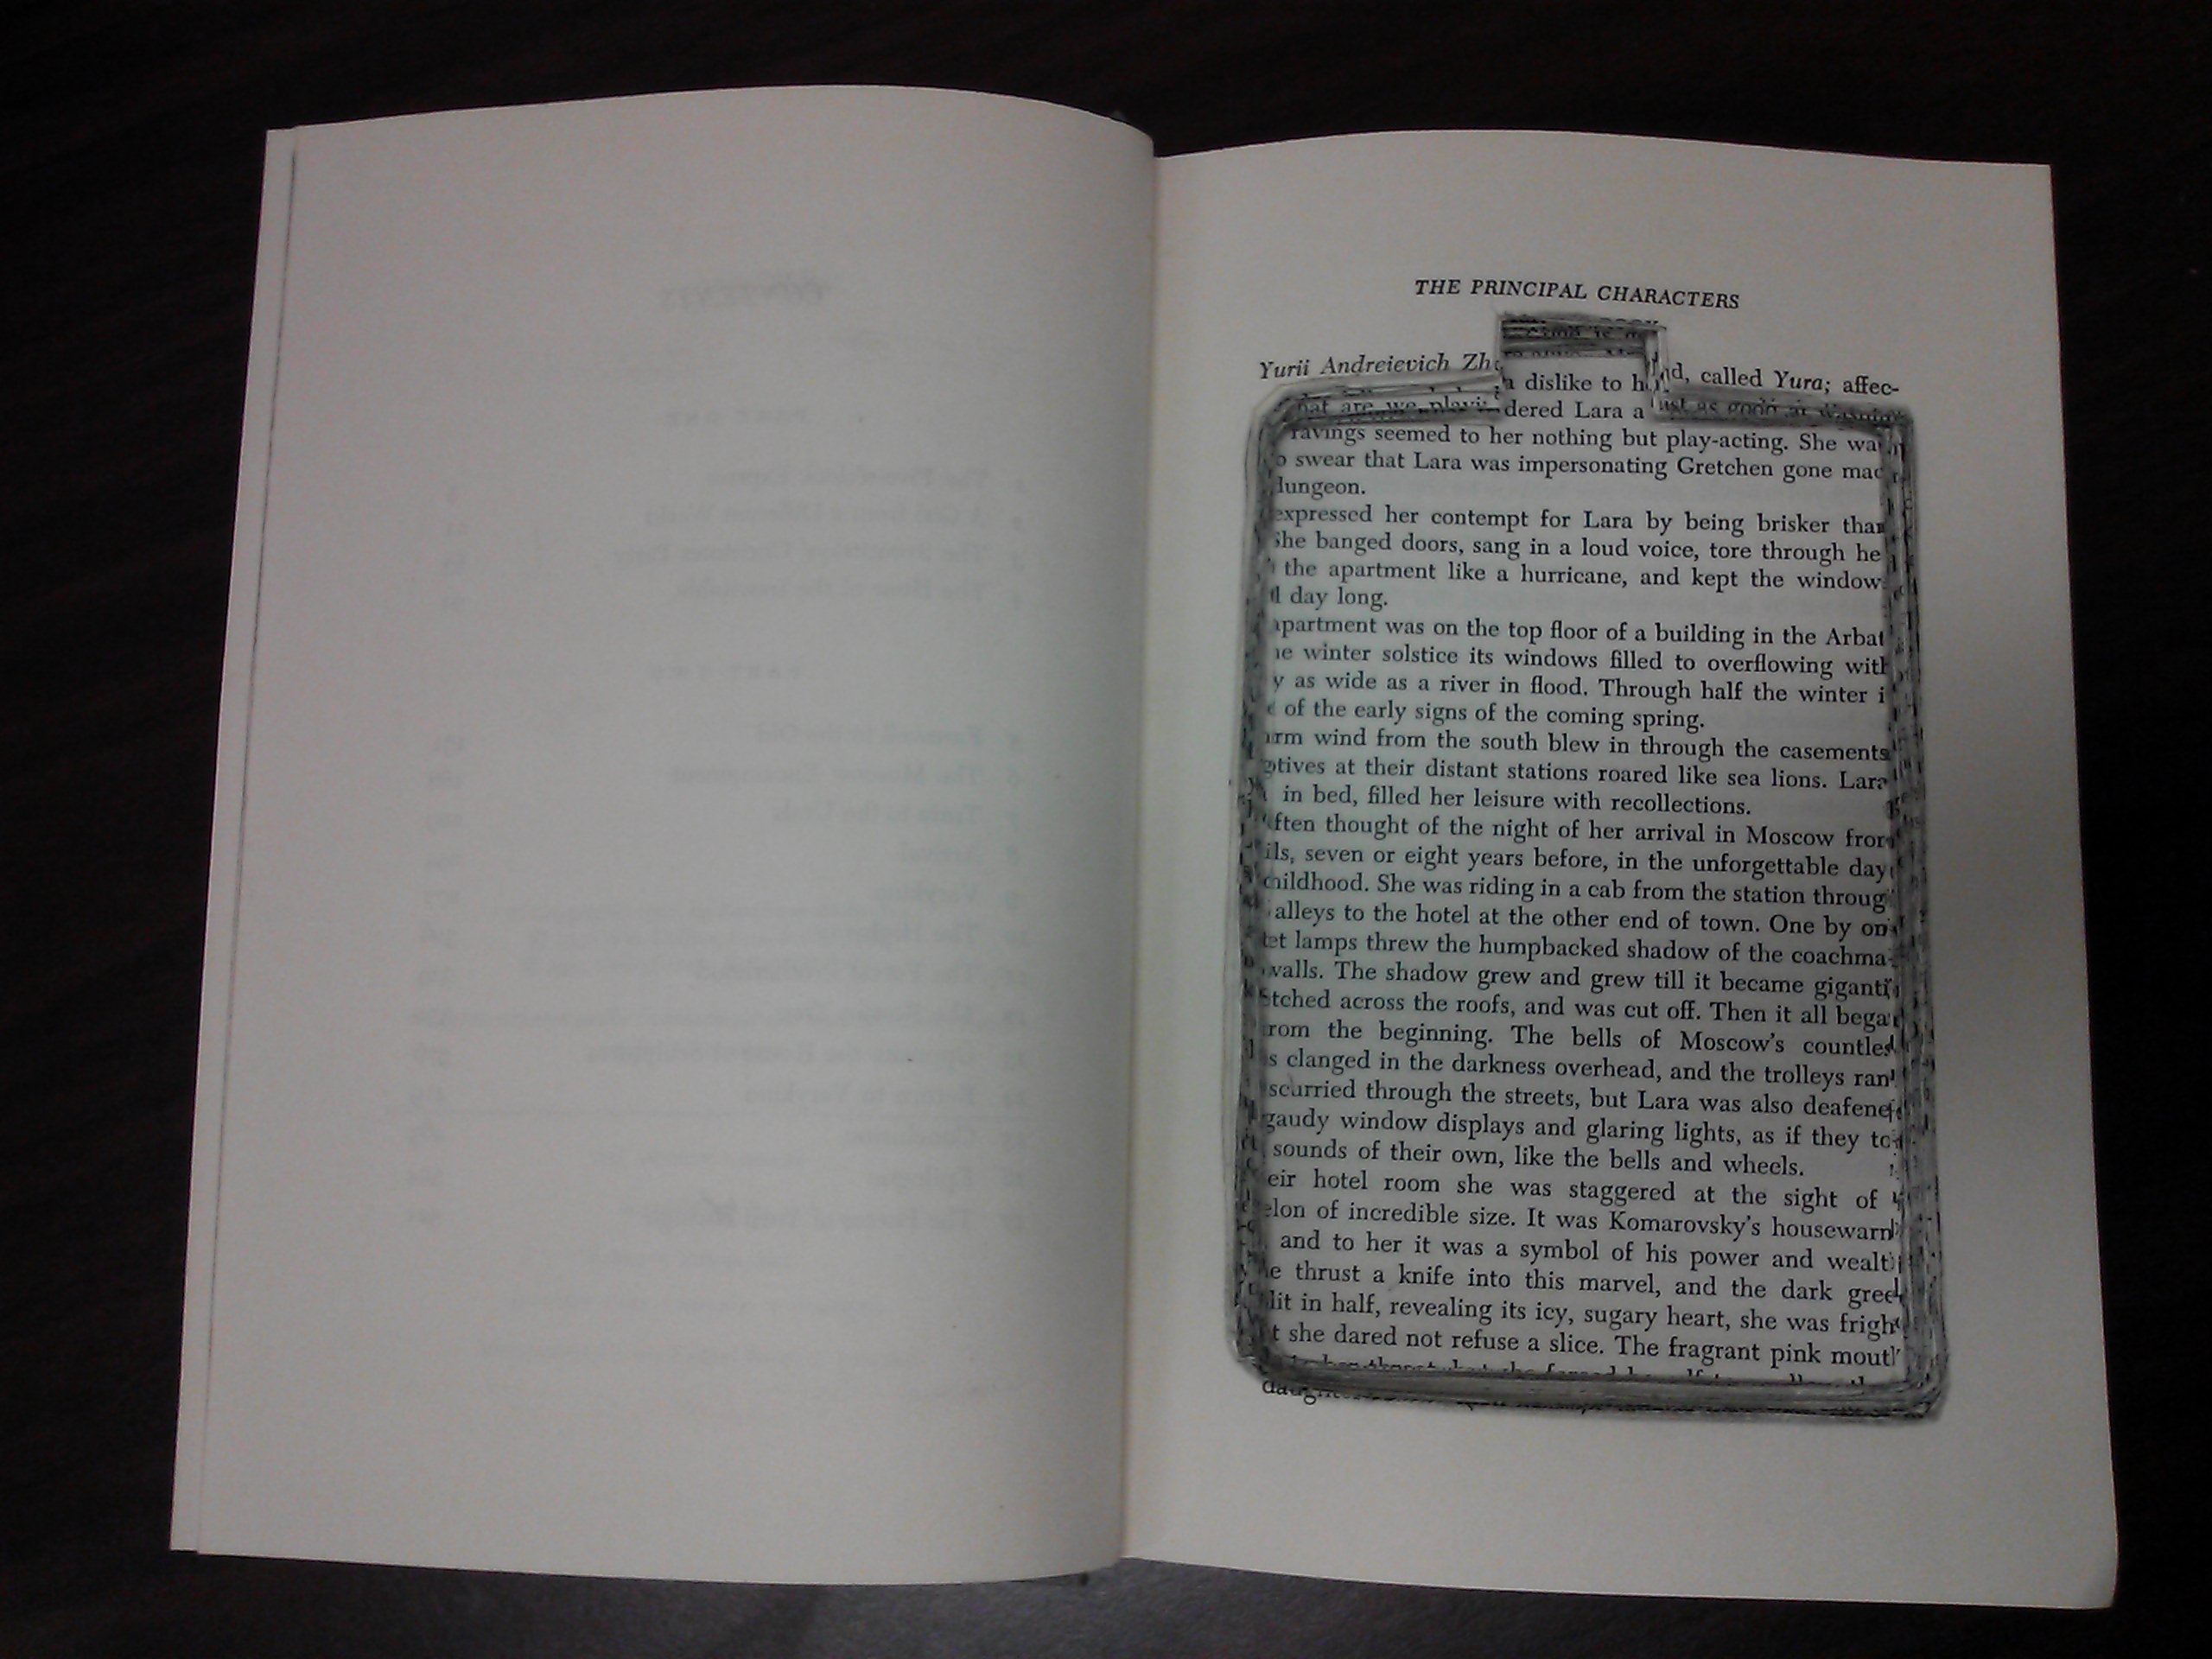 THE PRINCIPAL CHARACTERS
Yurii Andreievich Zh
d, called Yura; affec-
dislike to h
hat are we playi
dered Lara a
just as good at
ravings seemed to her nothing but play-acting. She wa
o swear that Lara was impersonating Gretchen gone mad
dungeon.
expressed her contempt for Lara by being brisker than
She banged doors, sang in a loud voice, tore through he
the apartment like a hurricane, and kept the window
ll day long.
apartment was on the top floor of a building in the Arbat
he winter solstice its windows filled to overflowing with
y as wide as a river in flood. Through half the winter i
of the early signs of the coming spring.
arm wind from the south blew in through the casements
otives at their distant stations roared like sea lions. Lara
in bed, filled her leisure with recollections.
often thought of the night of her arrival in Moscow from
ils, seven or eight years before, in the unforgettable day
childhood. She was riding in a cab from the station throug
alleys to the hotel at the other end of town. One by on
et lamps threw the humpbacked shadow of the coachma
walls. The shadow grew and grew till it became giganti
etched across the roofs, and was cut off. Then it all bega
from the beginning. The bells of Moscow's countles
s clanged in the darkness overhead, and the trolleys ran
scurried through the streets, but Lara was also deafene
gaudy window displays and glaring lights, as if they to
sounds of their own, like the bells and wheels.
eir hotel room she was staggered at the sight of
elon of incredible size. It was Komarovsky's housewarm
and to her it was a symbol of his power and wealt
he thrust a knife into this marvel, and the dark gree
lit in half, revealing its icy, sugary heart, she was frigh
t she dared not refuse a slice. The fragrant pink mouth